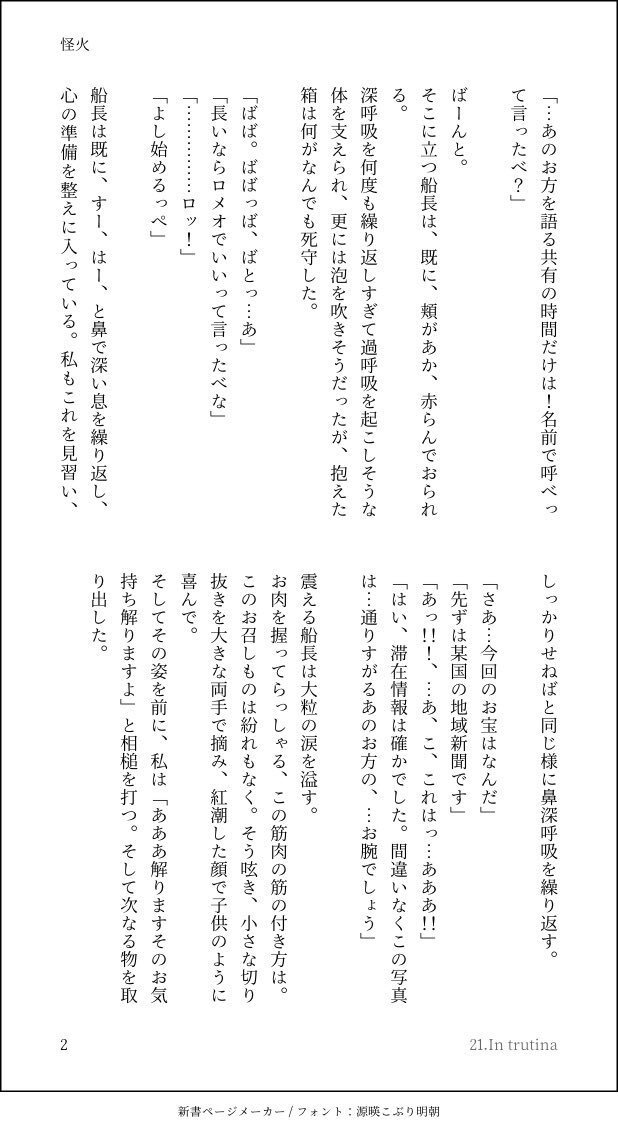 怪火
「…あのお方を語る共有の時間だけは！名前で呼べっ
て言ったべ？」
ばーんと。
そこに立つ船長は、既に、頬があか、赤らんでおられ
る。
深呼吸を何度も繰り返しすぎて過呼吸を起こしそうな
体を支えられ、更には泡を吹きそうだったが、抱えた
箱は何がなんでも死守した。
「ばば。ばばっば、ばとっ…あ」
「長いならロメオでいいって言ったべな」
「……………ロッ！」
「よし始めるっぺ」
船長は既に、すー、はー、と鼻で深い息を繰り返し、
心の準備を整えに入っている。私もこれを見習い、
しっかりせねばと同じ様に鼻深呼吸を繰り返す。
「さあ…今回のお宝はなんだ」
「先ずは某国の地域新聞です」
「あっ!!！、…あ、こ、これはっ…あああ!!」
「はい、滞在情報は確かでした。間違いなくこの写真
は…通りすがるあのお方の、…お腕でしょう」
震える船長は大粒の涙を溢す。
お肉を握ってらっしゃる、この筋肉の筋の付き方は。
このお召しものは紛れもなく。そう呟き、小さな切り
抜きを大きな両手で摘み、紅潮した顔で子供のように
喜んで。
そしてその姿を前に、私は「あああ解りますそのお気
持ち解りますよ」と相槌を打つ。そして次なる物を取
り出した。
2
21.In trutina
新書ページメーカー / フォント：源暎こぶり明朝